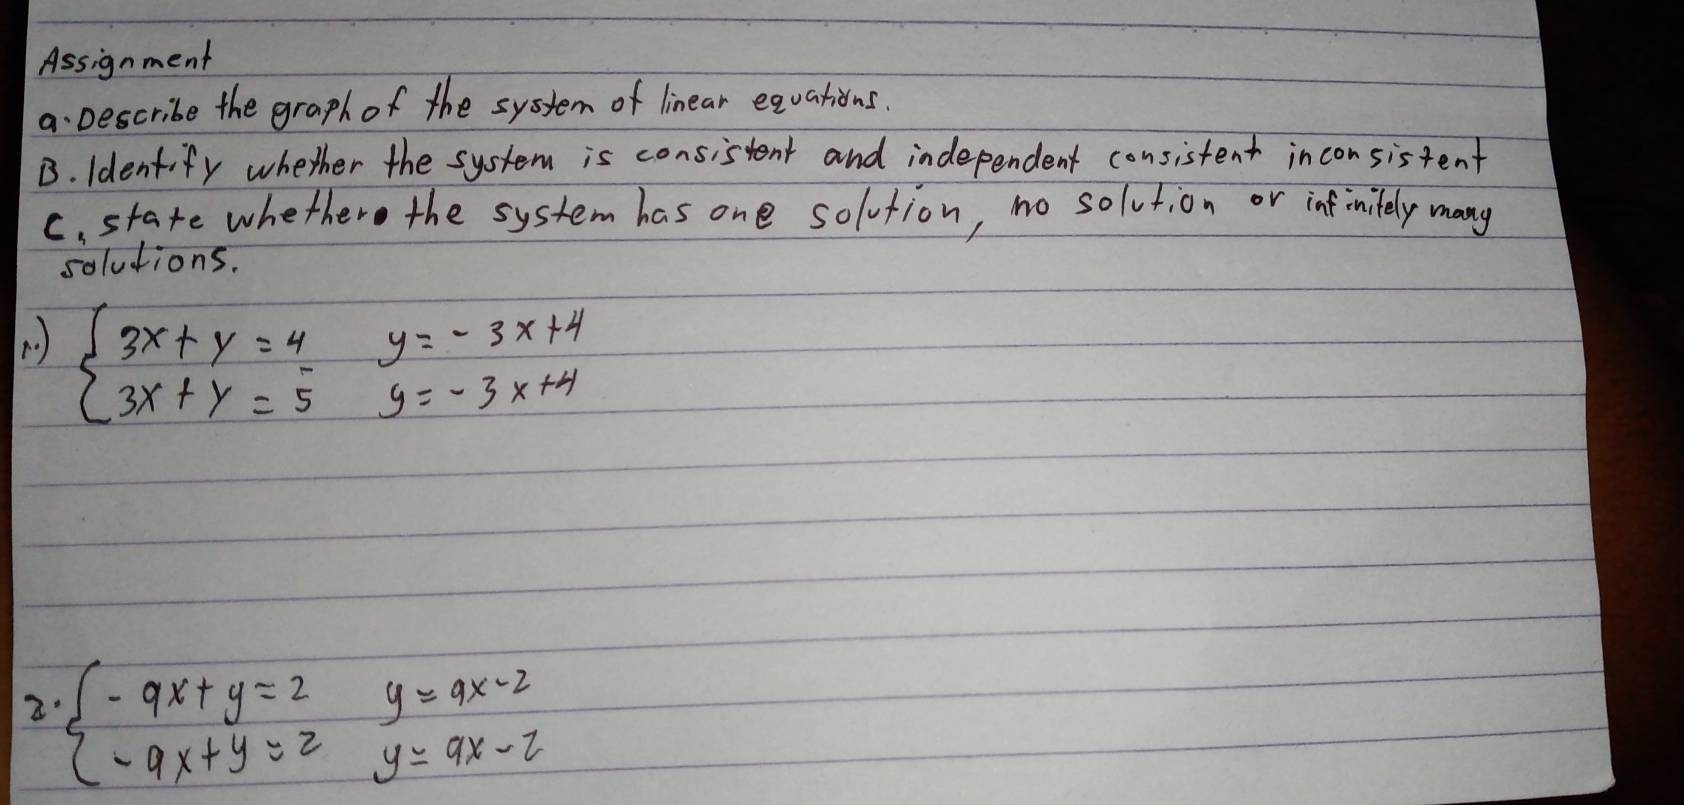 Assignment
a. Describe the graph of the system of linear equations.
B. Identify whether the system is consistent and independent consistent inconsistent
C. state whether the system has one solution, no solution or infinitely many
solutions.
1.) { 3x + y = 4 y = - 3x+4
3x + y = 5 y = - 3x+4
2. { - 9x + y = 2 y = 9x-2
- 9x + y = 2 y = 9x-2